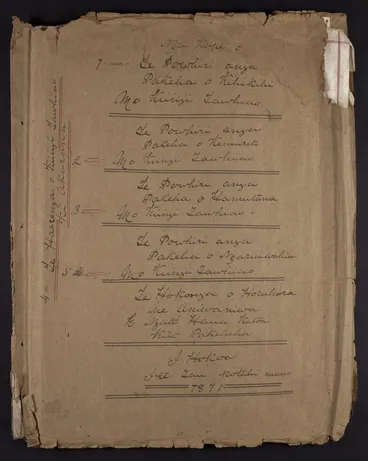 Nga Kope o
1 — Te Powhiri anga
Pakeha o Kihikihi
Mo Kiingi Tawhiao
Te Powhiri anga
Pakeha o Kemureti
2 = Mo Kiingi Tawhiao
Te Powhiri anga
Pakeha o Hamutana
3 = Mo Kiingi Tawhiao
Te Powhiri anga
Pakeha o Ngaruawahia
5 = Mo Kiingi Tawhiao
Te Hokonga o Horahora
me Aniwaniwa
E Ngati Haua Katoa
Kite Pakeha
I Hokoa
I te Tau Kotahi mano
1871
4 = Te Haerenga o Kiingi Tawhiao
Ki Akarana